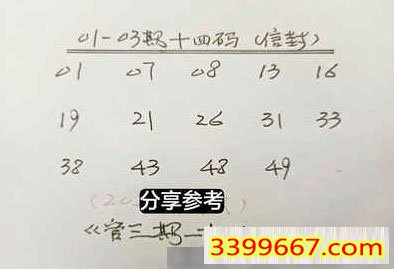 01-03期十四码(信封)
01 07 08 13 16
19 21 26 31 33
38 43 48 49
(20
分享参考
《管三期二
3399667.com